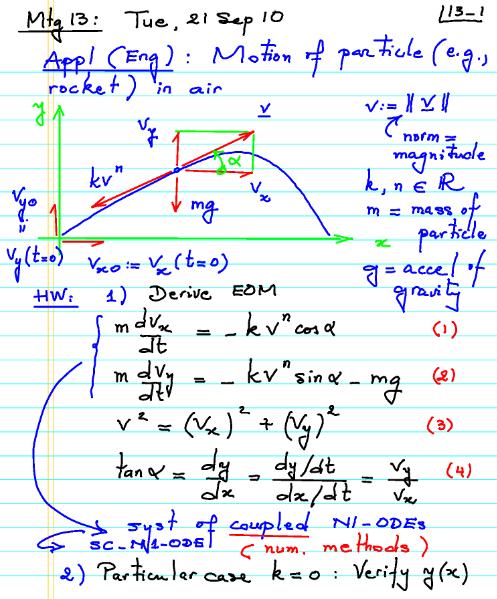 Mtg 13: Tue, 21 Sep 10
13-1
Appl (Eng): Motion of particle (e.g.,
rocket) in air
y
v_y
v
α
kv^n
v_x
mg
v_y0
=
v_y(t=0)
v_x0 := v_x(t=0)
x
v := ‖v‖
norm =
magnitude
k, n ∈ ℝ
m = mass of
particle
g = accel of
gravity
HW: 1) Derive EOM
m dv_x/dt = - kv^n cos α (1)
m dv_y/dt = - kv^n sin α - mg (2)
v^2 = (v_x)^2 + (v_y)^2 (3)
tan α = dy/dx = (dy/dt)/(dx/dt) = v_y/v_x (4)
syst of coupled N1-ODEs
SC-N1-ODE (num. methods)
2) Particular case k=0 : Verify y(x)